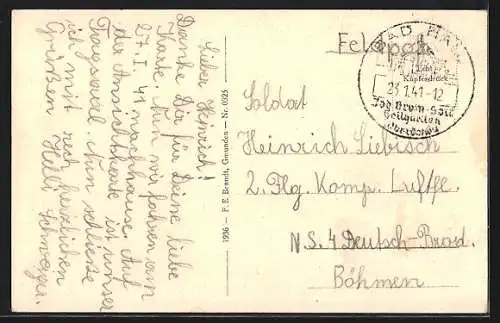 Lieber Heinrich!
Danke Dir für Deine liebe
Karte. Nun wir fahren am
27. I. 41 nachhause. Auf
der Ansichtkarte ist unser
Tanzsaal. Nun schliesse
ich mit recht herzlichen
Grüßen Halli Schwager.
1996 - F. E. Brandt, Gmunden - Nr. 0325
Feldpost
BAD HALL
23.1.41-12
Jod Brom
Heilquellen
Oberdonau
Soldat
Heinrich Liebisch
2. Flg. Komp. Luftfl.
N.S. 4 Deutsch-Brod.
Böhmen